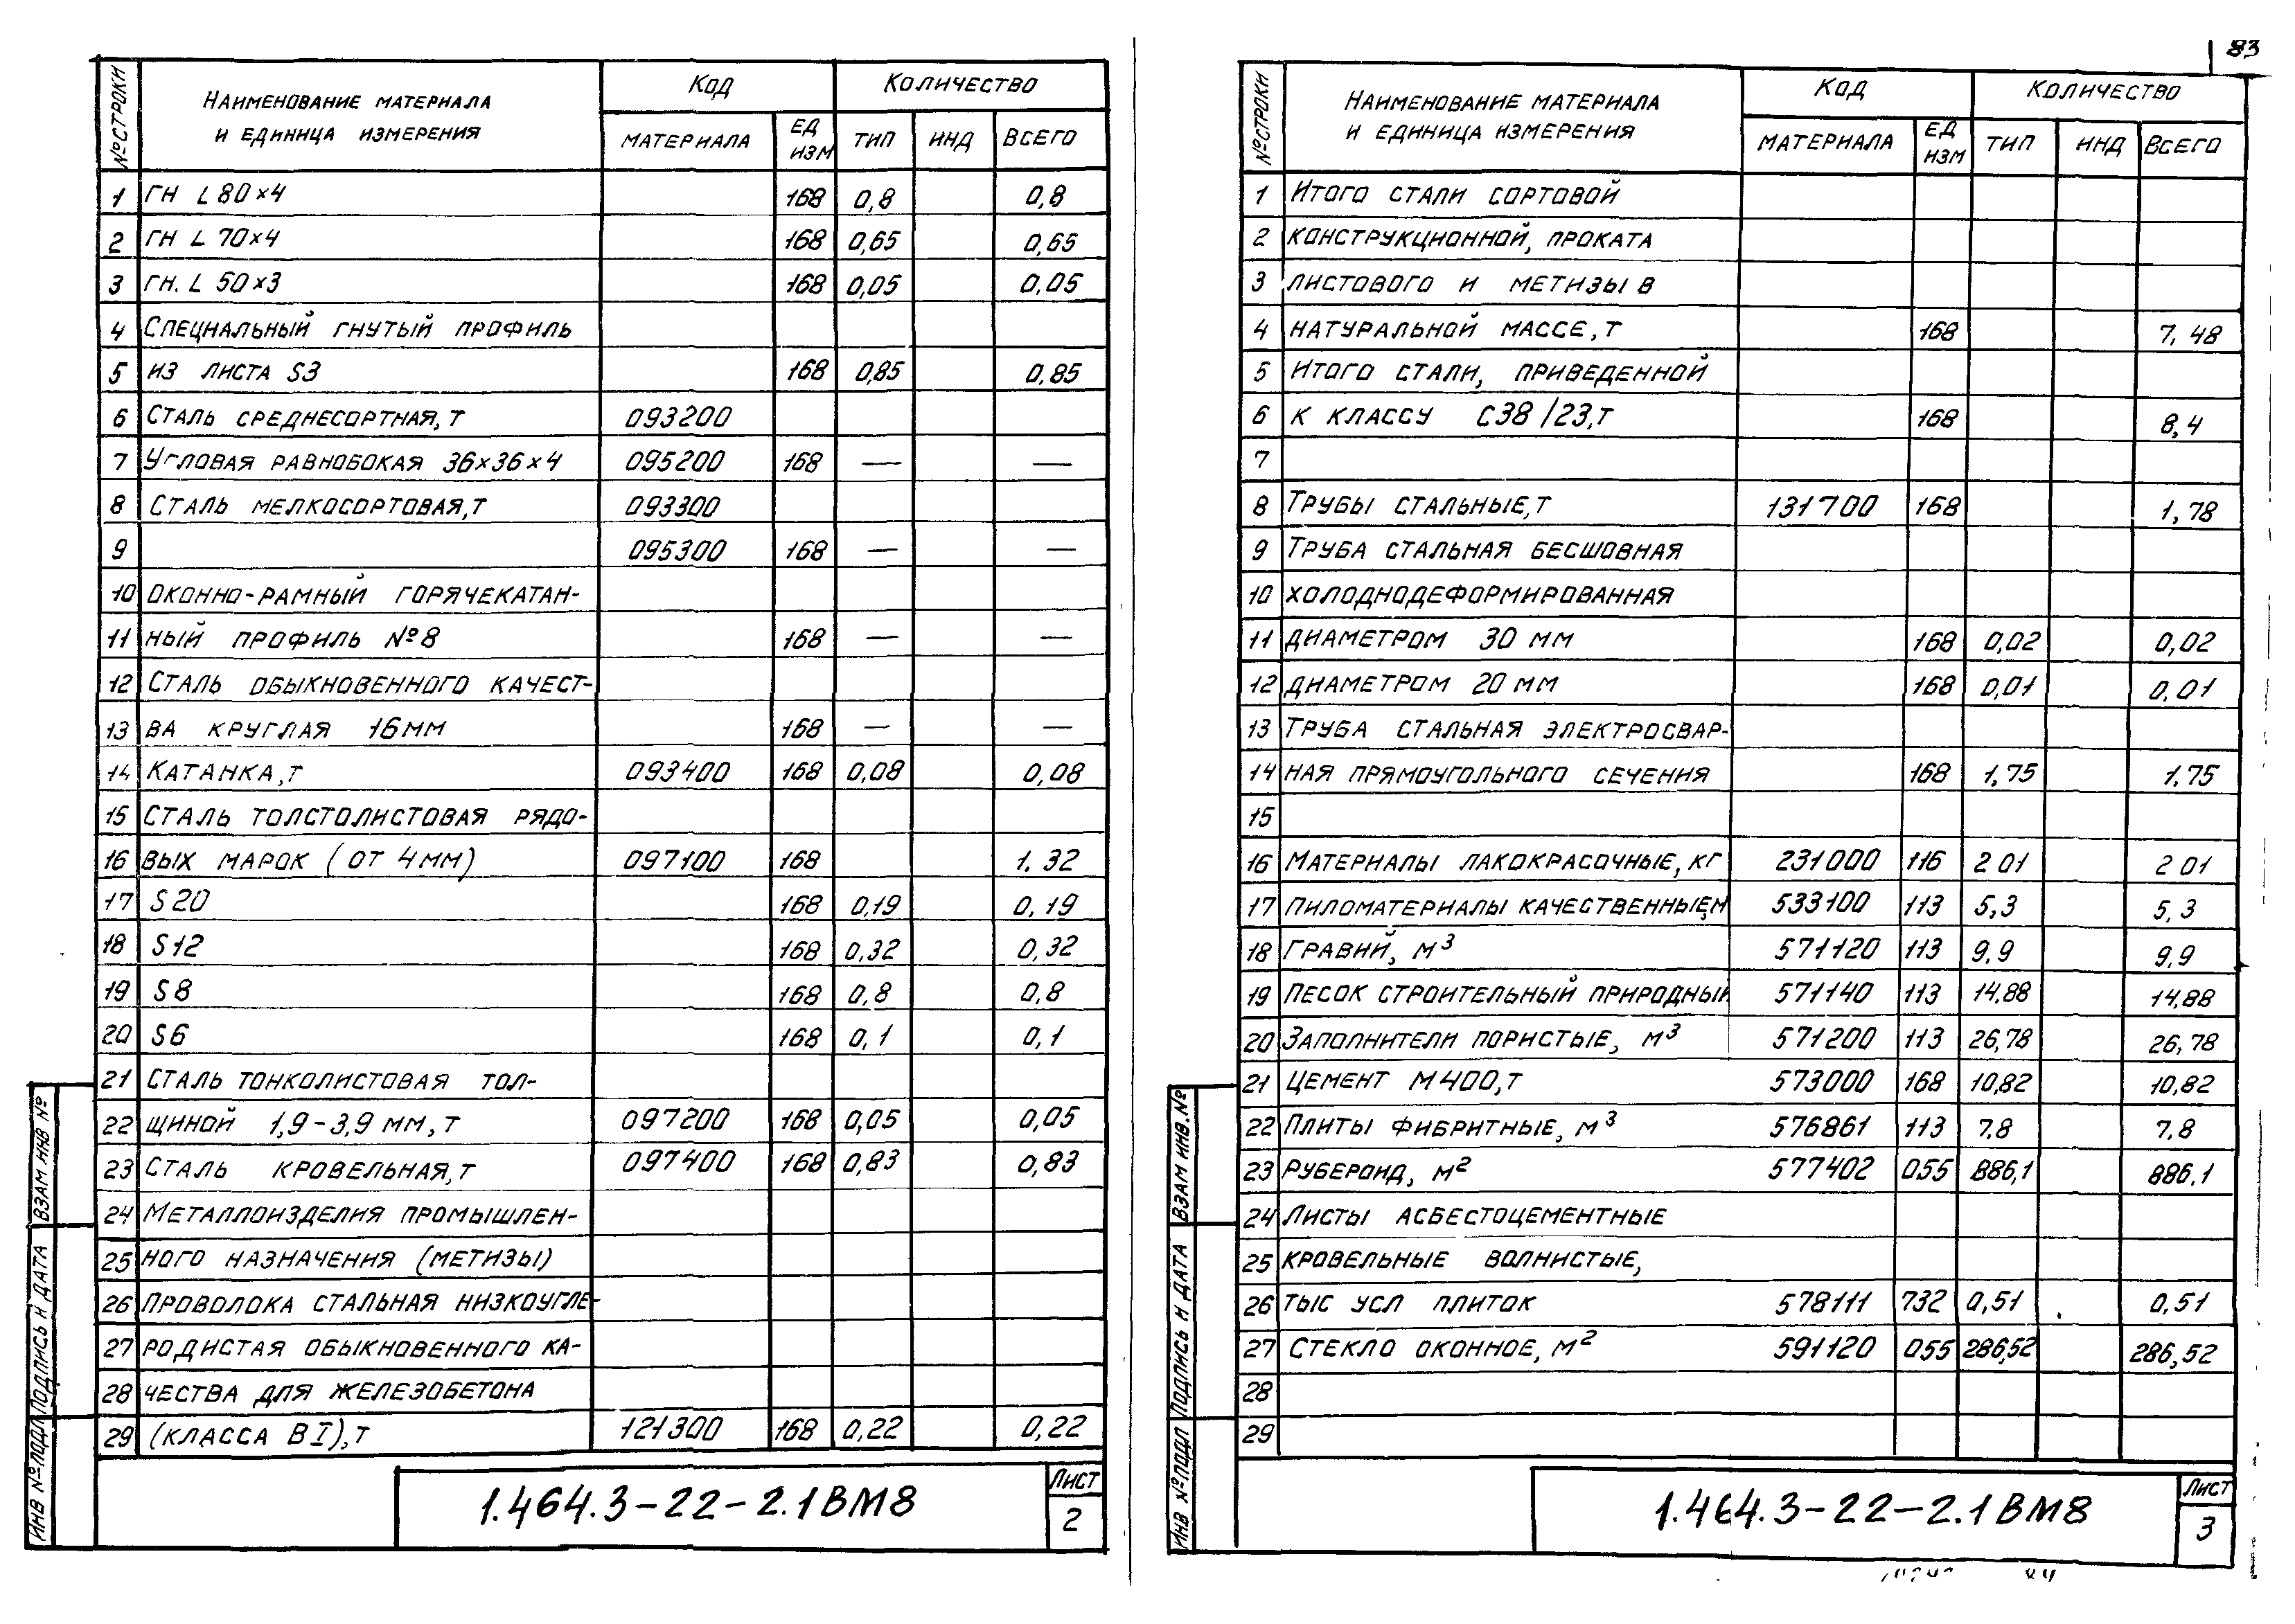 83
№ СТРОКИ | НАИМЕНОВАНИЕ МАТЕРИАЛА И ЕДИНИЦА ИЗМЕРЕНИЯ | КОД | КОЛИЧЕСТВО
МАТЕРИАЛА | ЕД ИЗМ | ТИП | ИНД | ВСЕГО
1 ГН L 80×4 168 0,8 0,8
2 ГН L 70×4 168 0,65 0,65
3 ГН. L 50×3 168 0,05 0,05
4 СПЕЦИАЛЬНЫЙ ГНУТЫЙ ПРОФИЛЬ
5 ИЗ ЛИСТА S3 168 0,85 0,85
6 СТАЛЬ СРЕДНЕСОРТНАЯ, Т 093200
7 УГЛОВАЯ РАВНОБОКАЯ 36×36×4 095200 168 — —
8 СТАЛЬ МЕЛКОСОРТОВАЯ, Т 093300
9 095300 168 — —
10 ОКОННО-РАМНЫЙ ГОРЯЧЕКАТАН-
11 НЫЙ ПРОФИЛЬ №8 168 — —
12 СТАЛЬ ОБЫКНОВЕННОГО КАЧЕСТ-
13 ВА КРУГЛАЯ 16ММ 168 — —
14 КАТАНКА, Т 093400 168 0,08 0,08
15 СТАЛЬ ТОЛСТОЛИСТОВАЯ РЯДО-
16 ВЫХ МАРОК (ОТ 4ММ) 097100 168 1.32
17 S20 168 0,19 0,19
18 S12 168 0,32 0,32
19 S8 168 0,8 0,8
20 S6 168 0,1 0,1
21 СТАЛЬ ТОНКОЛИСТОВАЯ ТОЛ-
22 ЩИНОЙ 1,9-3,9 ММ, Т 097200 168 0,05 0,05
23 СТАЛЬ КРОВЕЛЬНАЯ, Т 097400 168 0,83 0,83
24 МЕТАЛЛОИЗДЕЛИЯ ПРОМЫШЛЕН-
25 НОГО НАЗНАЧЕНИЯ (МЕТИЗЫ)
26 ПРОВОЛОКА СТАЛЬНАЯ НИЗКОУГЛЕ-
27 РОДИСТАЯ ОБЫКНОВЕННОГО КА-
28 ЧЕСТВА ДЛЯ ЖЕЛЕЗОБЕТОНА
29 (КЛАССА ВI), Т 121300 168 0,22 0,22
ИНВ № ПОДЛ ПОДПИСЬ И ДАТА ВЗАМ ИНВ №
1.464.3-22-2.1ВМ8
ЛИСТ
2
№ СТРОКИ | НАИМЕНОВАНИЕ МАТЕРИАЛА И ЕДИНИЦА ИЗМЕРЕНИЯ | КОД | КОЛИЧЕСТВО
МАТЕРИАЛА | ЕД ИЗМ | ТИП | ИНД | ВСЕГО
1 ИТОГО СТАЛИ СОРТОВОЙ
2 КОНСТРУКЦИОННОЙ, ПРОКАТА
3 ЛИСТОВОГО И МЕТИЗЫ В
4 НАТУРАЛЬНОЙ МАССЕ, Т 168 7,48
5 ИТОГО СТАЛИ, ПРИВЕДЕННОЙ
6 К КЛАССУ С38/23, Т 168 8,4
7
8 ТРУБЫ СТАЛЬНЫЕ, Т 131700 168 1,78
9 ТРУБА СТАЛЬНАЯ БЕСШОВНАЯ
10 ХОЛОДНОДЕФОРМИРОВАННАЯ
11 ДИАМЕТРОМ 30 ММ 168 0,02 0,02
12 ДИАМЕТРОМ 20 ММ 168 0,01 0,01
13 ТРУБА СТАЛЬНАЯ ЭЛЕКТРОСВАР-
14 НАЯ ПРЯМОУГОЛЬНОГО СЕЧЕНИЯ 168 1,75 1,75
15
16 МАТЕРИАЛЫ ЛАКОКРАСОЧНЫЕ, КГ 231000 116 201 201
17 ПИЛОМАТЕРИАЛЫ КАЧЕСТВЕННЫЕ, М 533100 113 5,3 5,3
18 ГРАВИЙ, М³ 571120 113 9,9 9,9
19 ПЕСОК СТРОИТЕЛЬНЫЙ ПРИРОДНЫЙ 571140 113 14,88 14,88
20 ЗАПОЛНИТЕЛИ ПОРИСТЫЕ, М³ 571200 113 26,78 26,78
21 ЦЕМЕНТ М400, Т 573000 168 10,82 10,82
22 ПЛИТЫ ФИБРИТНЫЕ, М³ 576861 113 7.8 7,8
23 РУБЕРОИД, М² 577402 055 886,1 886,1
24 ЛИСТЫ АСБЕСТОЦЕМЕНТНЫЕ
25 КРОВЕЛЬНЫЕ ВОЛНИСТЫЕ,
26 ТЫС УСЛ ПЛИТОК 578111 732 0,51 0,51
27 СТЕКЛО ОКОННОЕ, М² 591120 055 286,52 286,52
28
29
ИНВ № ПОДЛ ПОДПИСЬ И ДАТА ВЗАМ ИНВ. №
1.464.3-22-2.1ВМ8
ЛИСТ
3